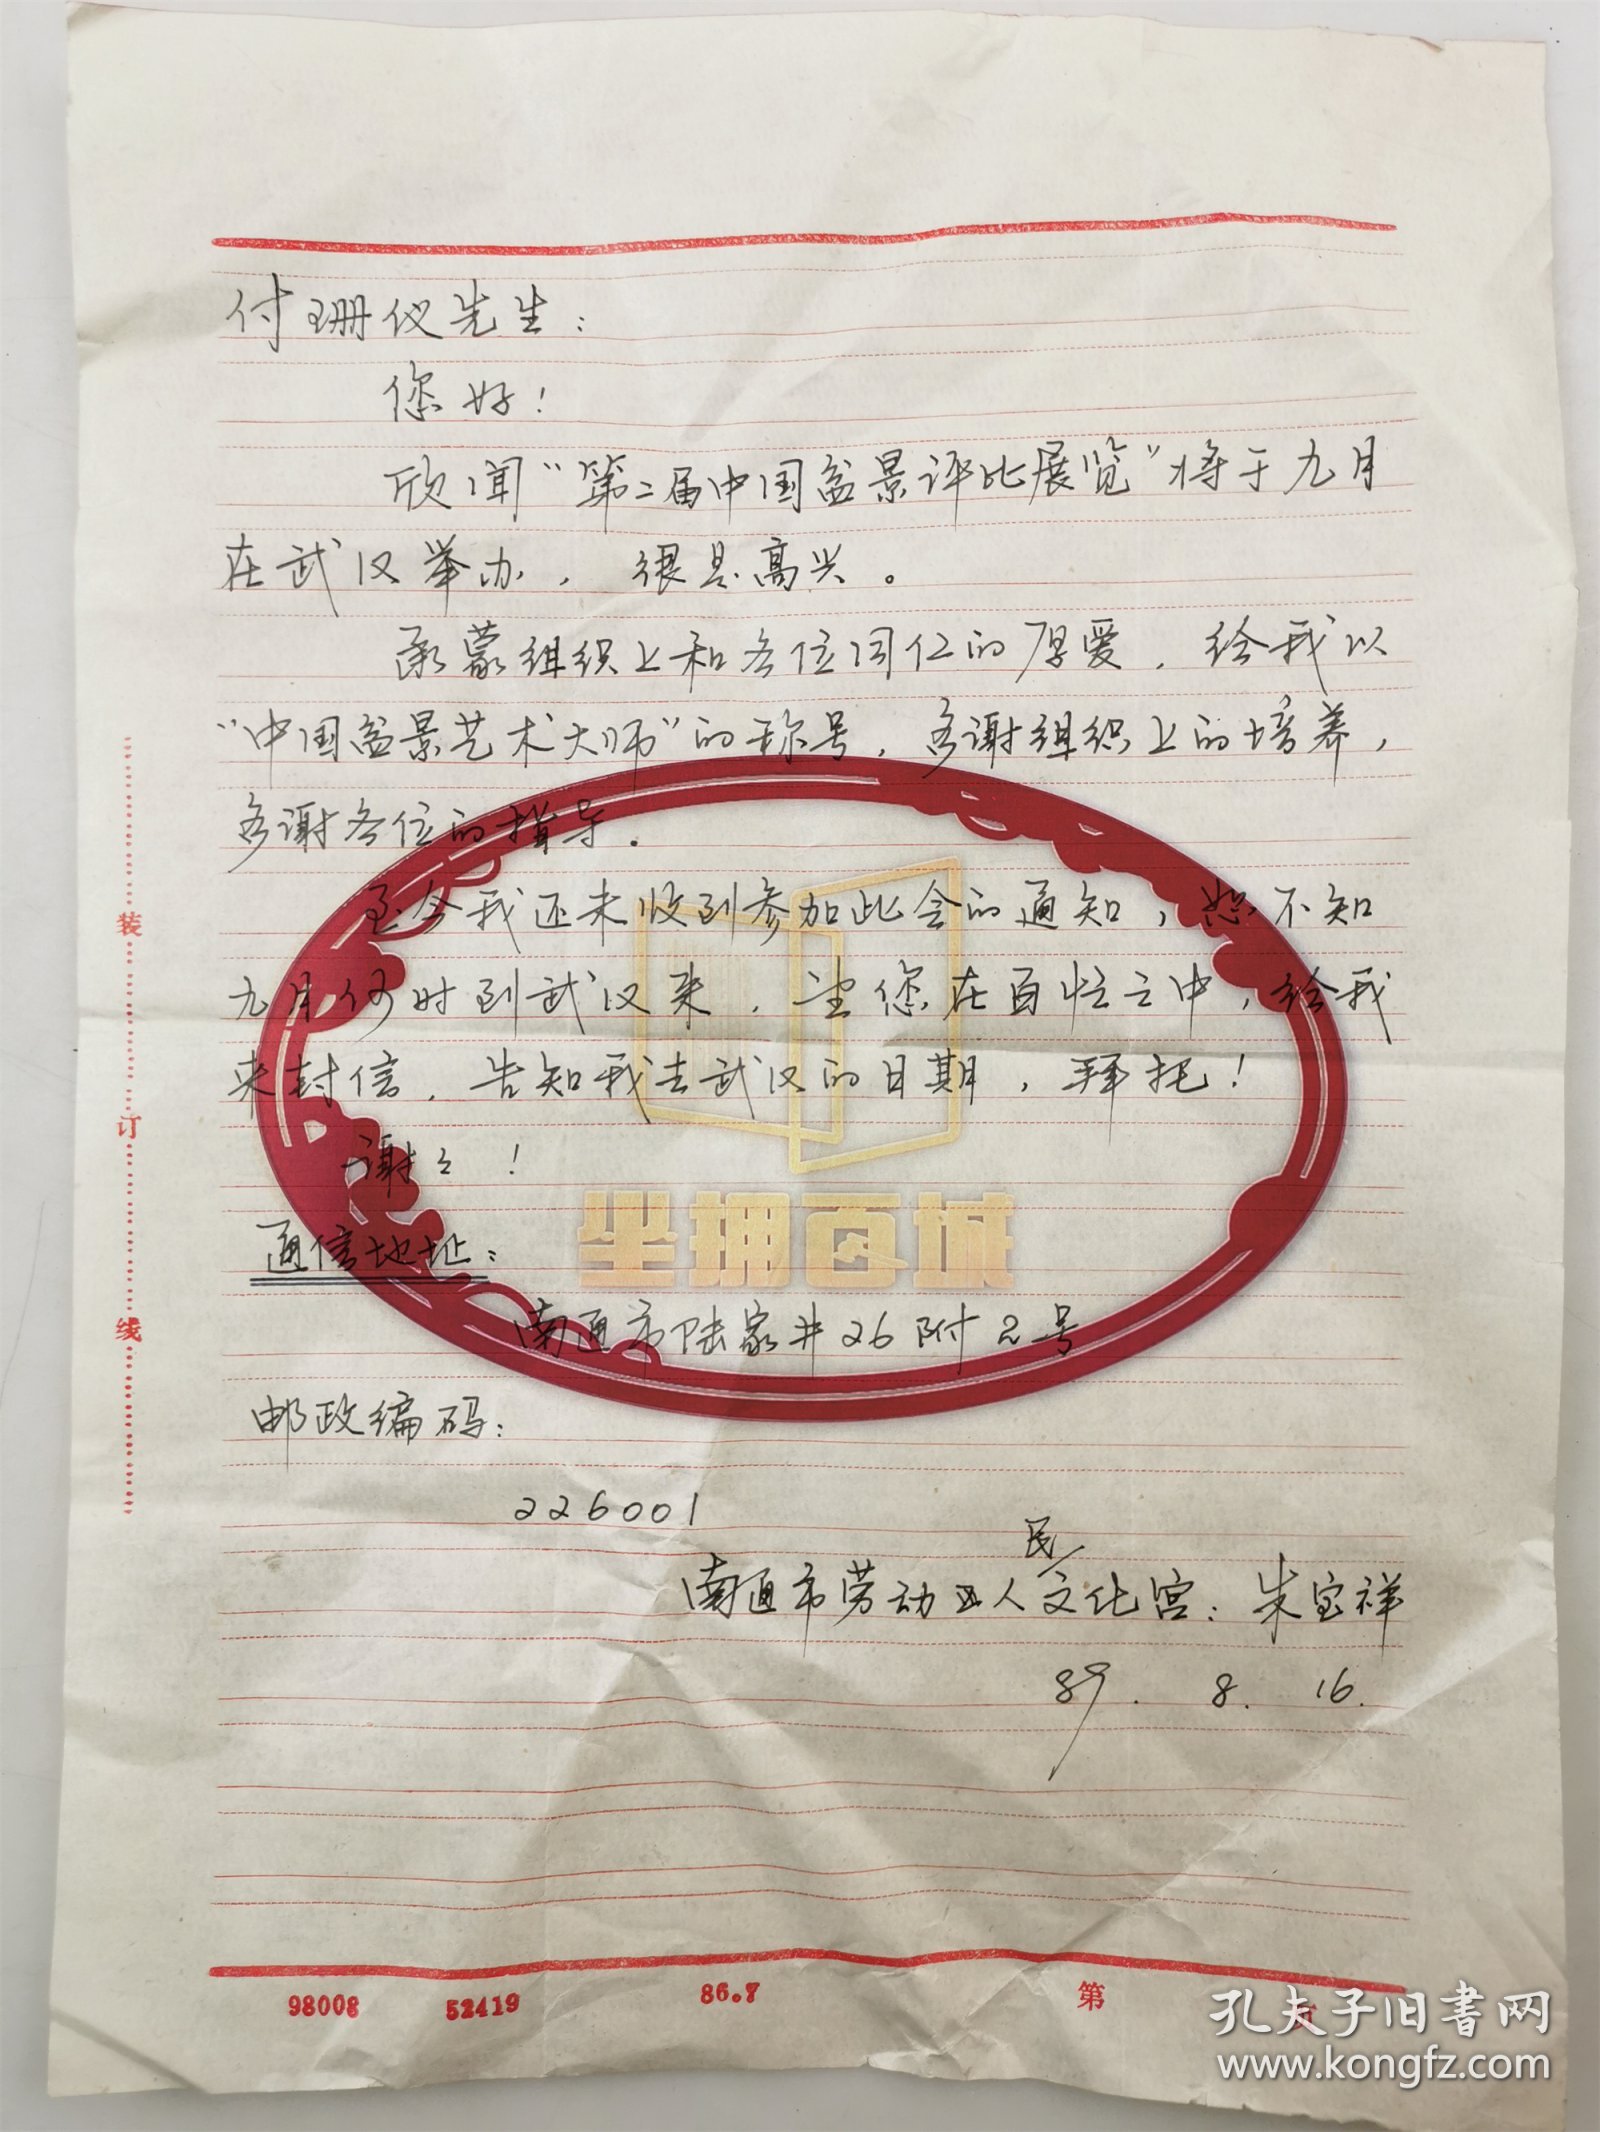 付珊仪先生：
您好！
欣闻“第二届中国盆景评比展览”将于九月
在武汉举办，很是高兴。
承蒙组织上和各位同仁的厚爱，给我以
“中国盆景艺术大师”的称号，多谢组织上的培养，
多谢各位的指导。
至今我还未收到参加此会的通知，恕不知
九月何时到武汉来，望您在百忙之中，给我
来封信，告知我去武汉的日期，拜托！
谢々！
坐拥百城
通信地址：
南通市陆家井26附2号
邮政编码：
226001
南通市劳动人民文化宫：朱宝祥
89.8.16.
装订线
98008 52419 86.7 第 页
孔夫子旧书网
www.kongfz.com